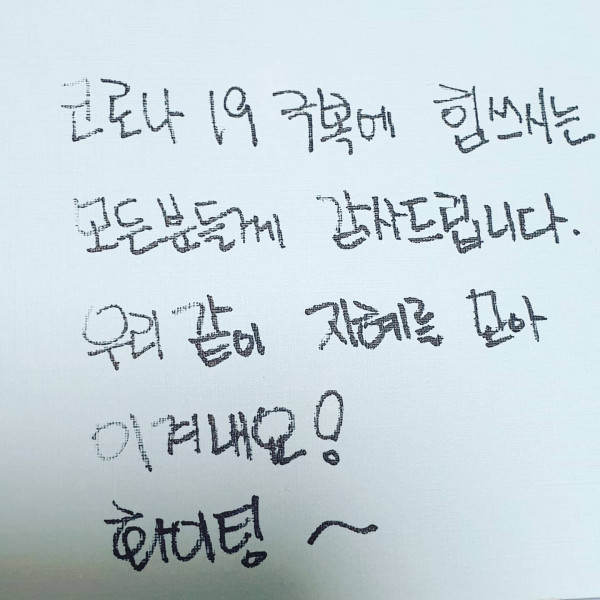 코로나 19 극복에 힘쓰시는
모든분들게 감사드립니다.
우리 같이 지혜를 모아
이겨내요!
화이팅 ~